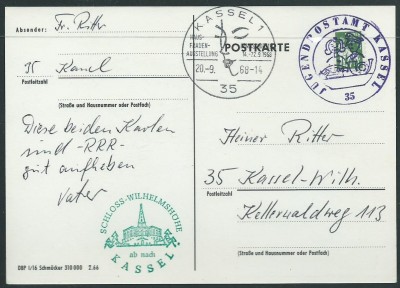 Absender:
Fr. Ritter
35 Kassel
Postleitzahl
(Straße und Hausnummer oder Postfach)
Diese beiden Karten
sind -RRR-
gut aufheben
Vater
SCHLOSS-WILHELMSHÖHE
ab nach
KASSEL
DBP 1/16 Schmücker 310 000 2.66
KASSEL 1
HAUS-
FRAUEN-
AUSSTELLUNG
20.-9. 68-14
35
POSTKARTE
JUGENDPOSTAMT KASSEL
35
Heiner Ritter
35 Kassel-Wilh.
Postleitzahl
Kellerwaldweg 113
(Straße und Hausnummer oder Postfach)